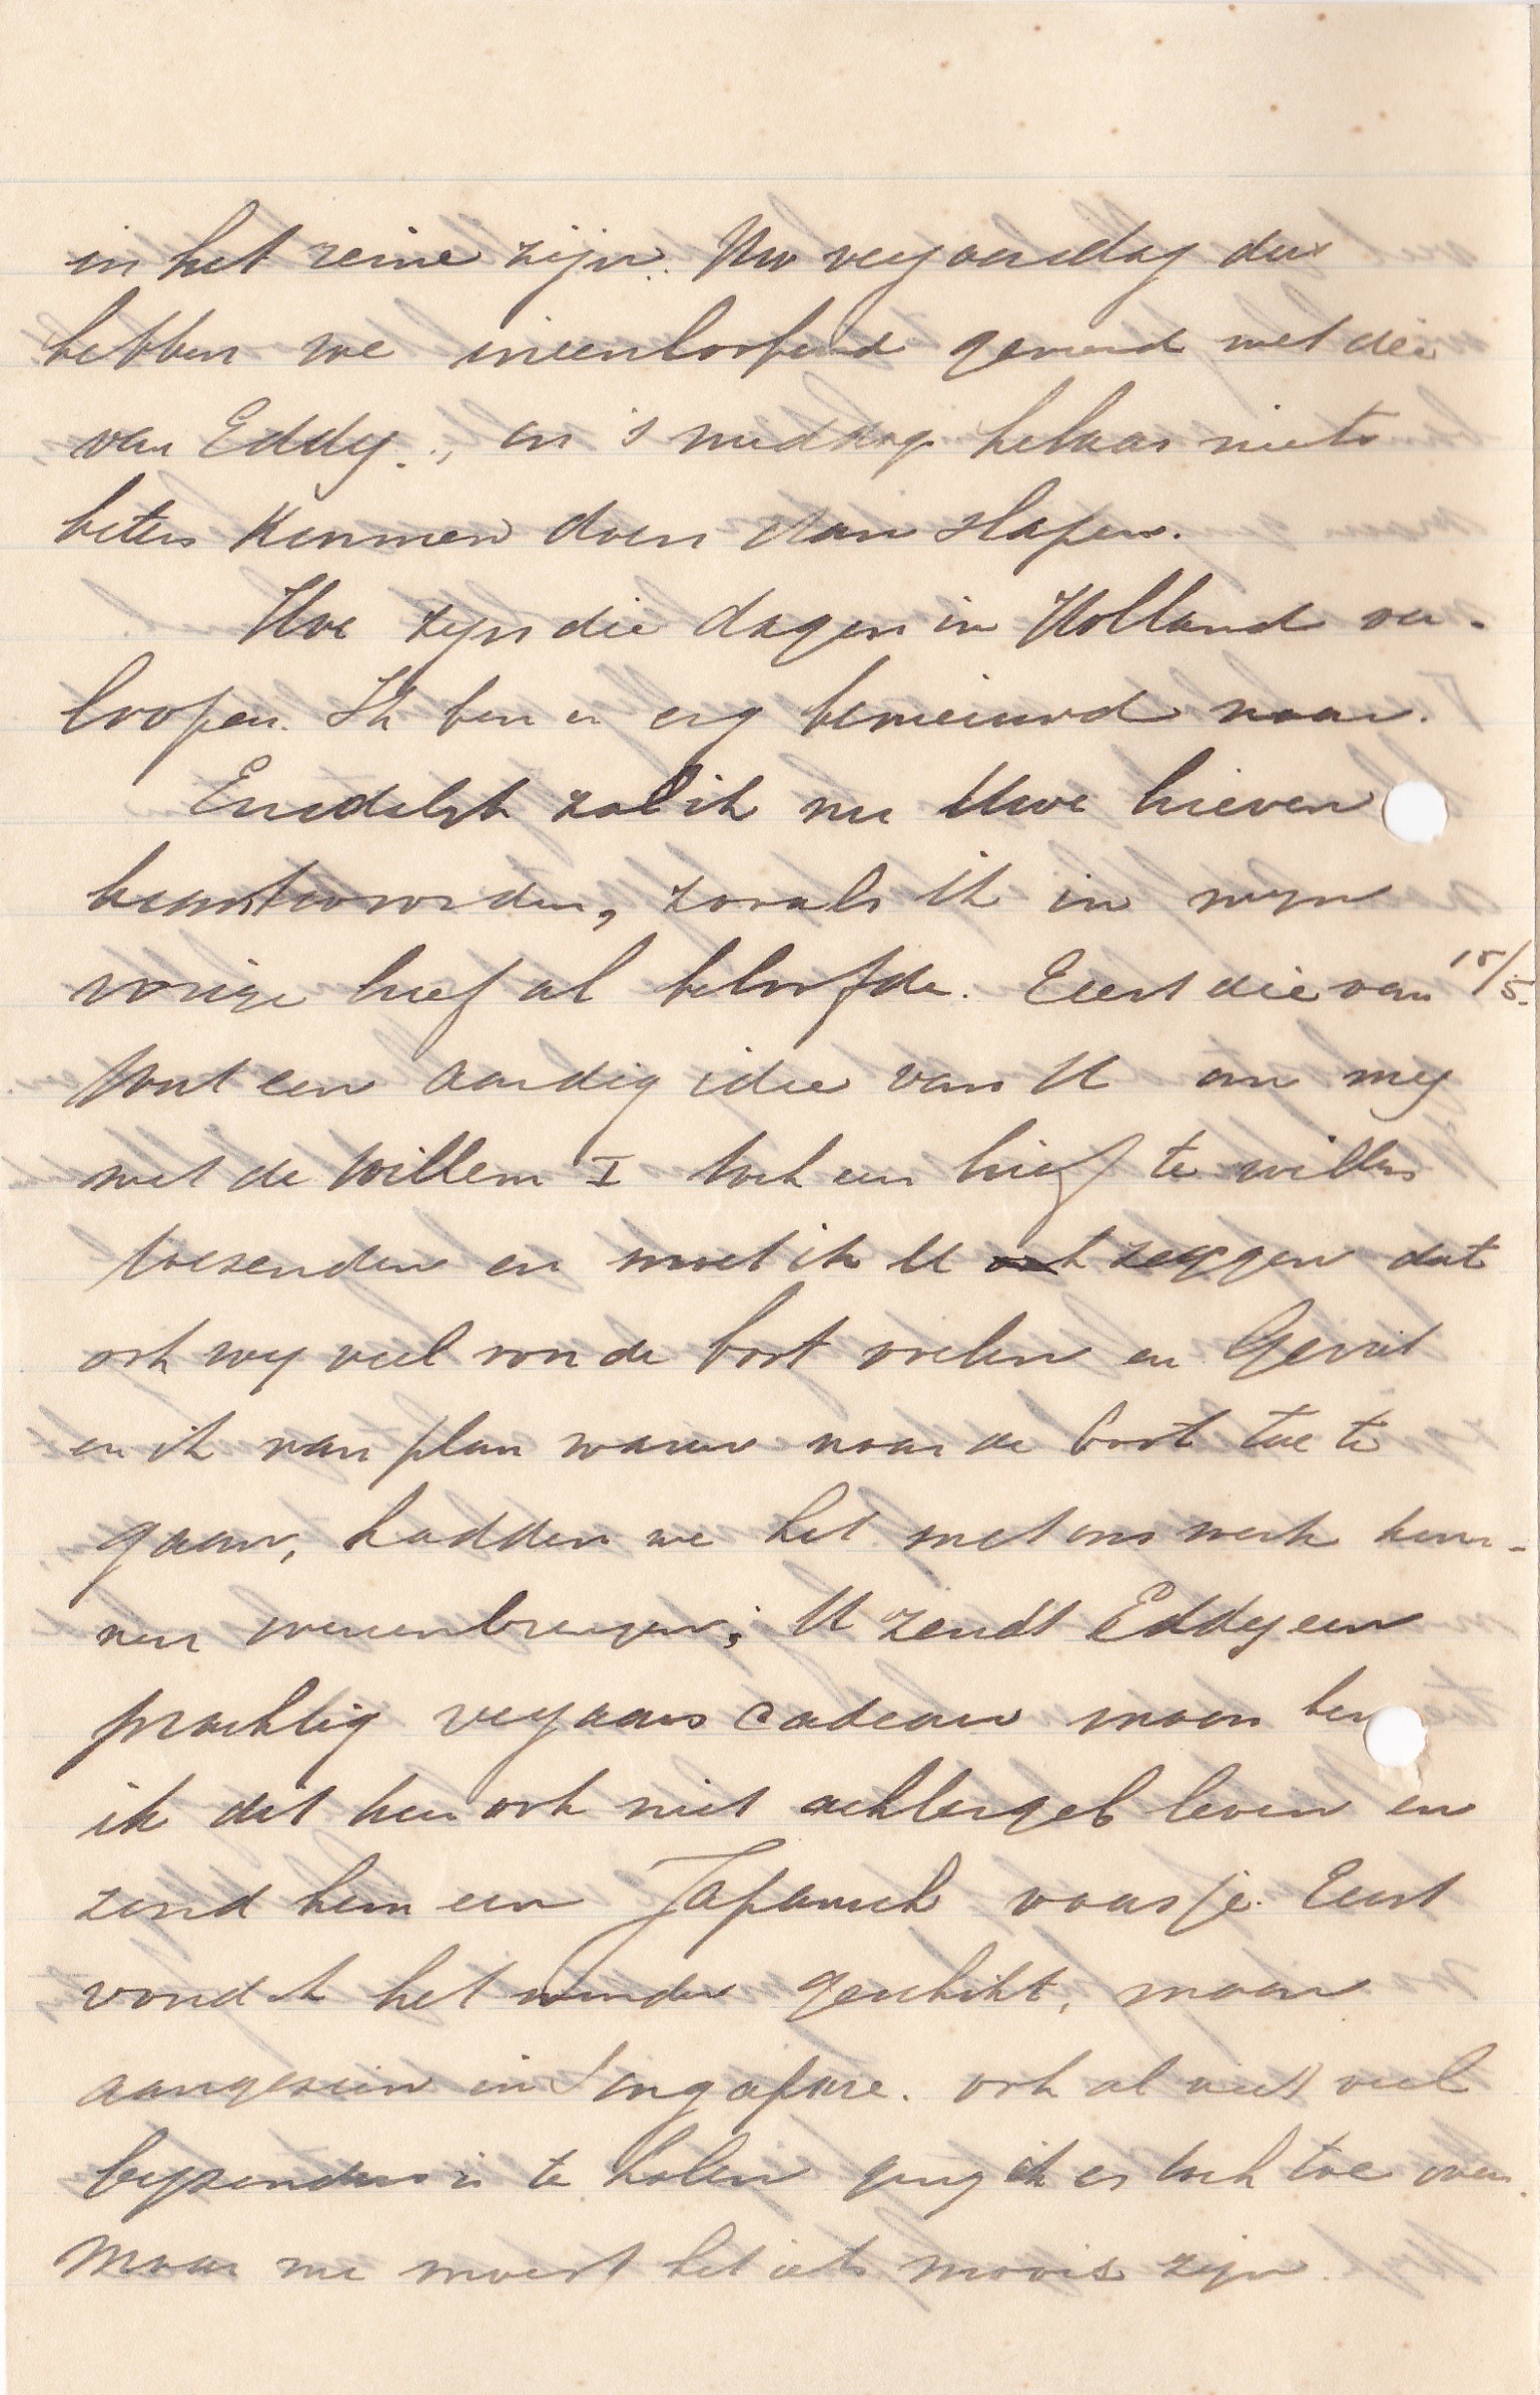 in het reine zijn. Uw verjaardag dus
hebben we ineenloopend gevierd met die
van Eddy., en 's middags helaas niets
beters kunnen doen dan slapen.
Hoe zijn die dagen in Holland ver-
loopen. Ik ben er erg benieuwd naar.
Eindelijk zal ik nu Uwe brieven
beantwoorden, zooals ik in mijn
vorige brief al beloofde. Eerst die van 15/5.
Wat een aardig idee van U om mij
met de Willem I toch een brief te willen
toezenden en moet ik U zeggen dat
ook wij veel van de boot vielen en Gerrit
en ik van plan waren naar de boot toe te
gaan, hadden we het met ons werk kun-
nen overeenbrengen; U zendt Eddy een
prachtig verjaars cadeau maar ben
ik dit keer ook niet achtergebleven en
zend hem een Japansch vaasje. Eerst
vond ik het minder geschikt, maar
aangezien in Singapore. ook al niet veel
bijzonders is te halen ging ik er toch toe over.
Maar nu moest het iets moois zijn.